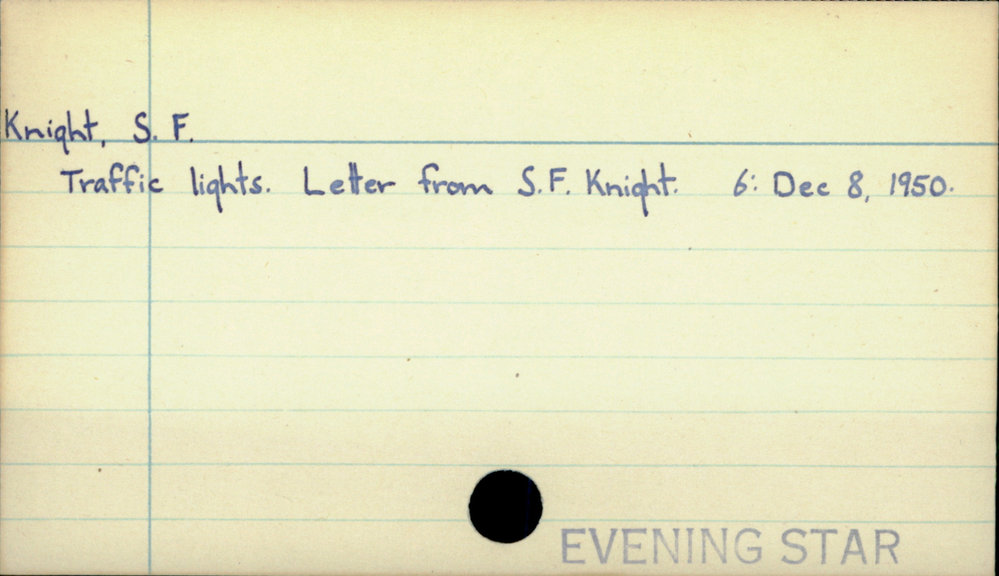 Knight, S. F.
Traffic lights. Letter from S.F. Knight. 6: Dec 8, 1950.
EVENING STAR